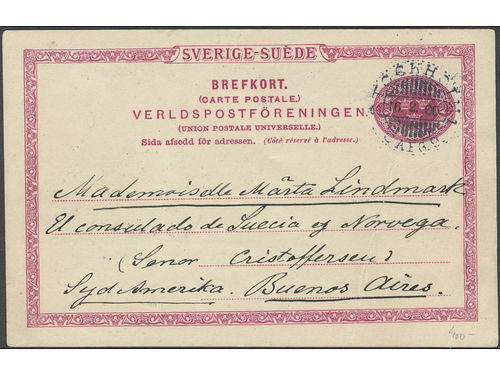 SVERIGE-SUÈDE
BREFKORT.
(CARTE POSTALE.)
VERLDSPOSTFÖRENINGEN.
(UNION POSTALE UNIVERSELLE.)
Sida afsedd för adressen. (Côté réservé à l'adresse.)
Mademoiselle Märta Lindmark
El consulado de Suecia y Norvega.
(Senor Cristoffersen)
Syd Amerika. Buenos Aires.
400-